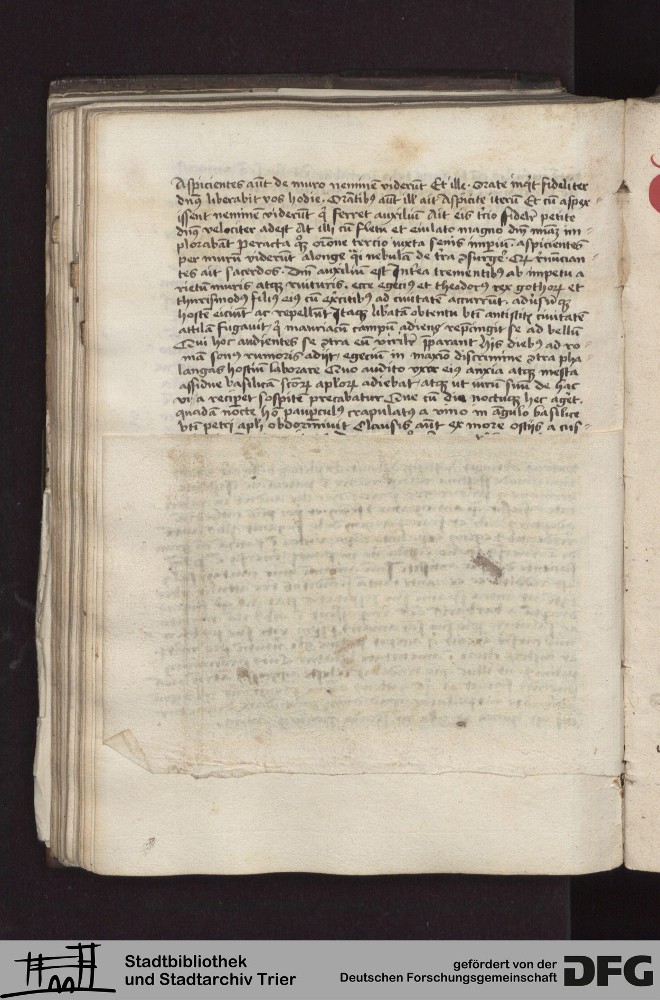 Aspicientes aūt de muro neminē viderūt Et ille · Orate inqͥt fideliter
dnꝰ liberabit vos hodie · Orātibꝰ aūt ill ait Aspicite iterū Et cū aspex
issent neminē viderūt qͥ ferret auxiliū Ait eis tcio fidelr petite
dnꝰ velociter adest At illi cū fletu et eiulato magno dnī miāz im
plorabāt Peracta qoqꝫ orōne tercio iuxta senis impiū · aspicientes
per murū viderūt alonge qͣi nebulā de tra ꝯsurgē · Qꝫ nūcian
tes ait sacerdos · Dnī auxiliū est Intrea trementibꝰ ab impetu a
rietū muris atqꝫ ruituris · ecce egeciꝰ et theodorꝰ rex gothoꝝ et
thurismodꝰ filiꝰ eiꝰ cū exᵉcitibꝰ ad ciuitatē accurrūt · adūsūqꝫ
hostē eiciūt ac repellūt Itaqꝫ libatā obtentu bti antistitꝭ ciuitatē
attilā fugauit · qͥ mauriacū campū adiens repcingit se ad bellū
Qui hoc audientes se ꝯtra eū virilr pparant hijs diebꝰ ad ro
mā sonꝰ rumoris adijt · egeciū in maxīo discrimine ꝯtra pha
langas hostiū laborare Quo audito vxor eiꝰ anxia atqꝫ mesta
assidue basilicā scoꝝ aploꝝ adiebat · atqꝫ ut uirū suū de hac
via recipet sospitē precabatur Que cū die noctuqꝫ hec agēt ·
quadā nocte hō paupculꝰ crapulatꝰ a vino in angulo basilice
bti petri apli obdormiuit Clausis aūt ex more ostijs a cus
Stadtbibliothek
und Stadtarchiv Trier
gefördert von der
Deutschen Forschungsgemeinschaft
DFG